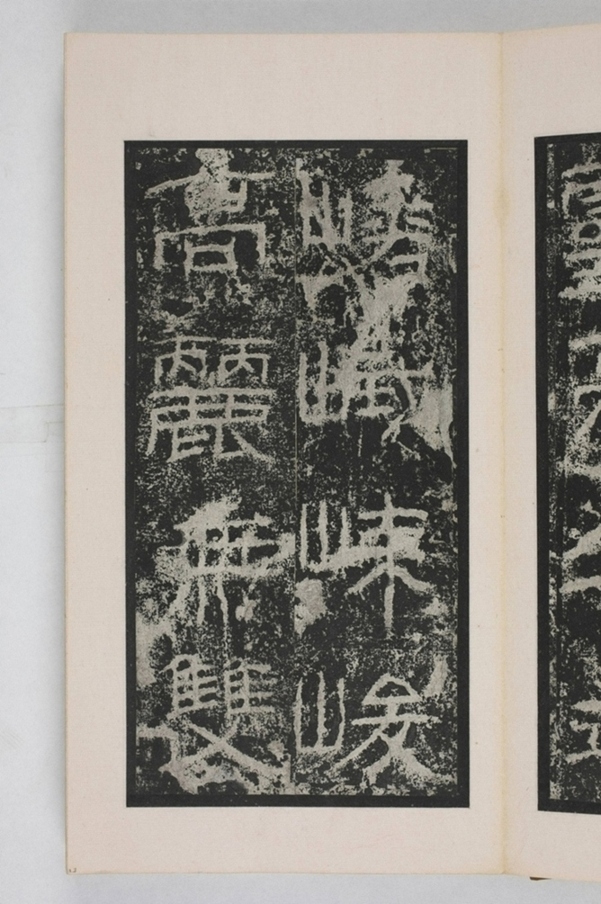 嵯峨竦峻
高麗無雙